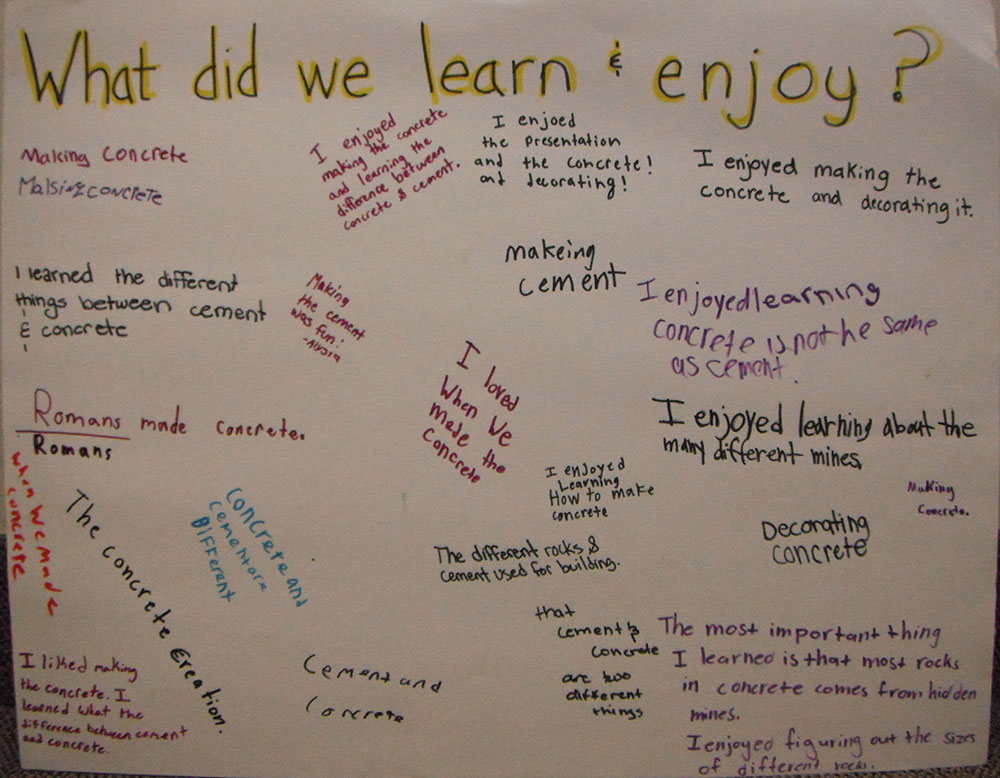 What did we learn & enjoy?
Making Concrete
I enjoyed
making the concrete
and learning the
difference between
concrete & cement.
I enjoed
the Presentation
and the concrete!
and decorating!
I enjoyed making the
concrete and decorating it.
makeing
cement
I learned the different
things between cement
& concrete
Making
the cement
was fun!
I enjoyed learning
concrete is not he same
as cement.
I loved
When We
made the
concrete
Romans made concrete.
Romans
I enjoyed learning about the
many different mines.
I enjoyed
Learning
How to make
concrete
Making
Concrete.
when We Made
concrete
The concrete Creation.
Concrete and
cement are
DIFFerent
Decorating
concrete
The different rocks &
cement used for building.
that
cement &
concrete
are two
different
things
The most important thing
I learned is that most rocks
in concrete comes from hidden
mines.
I enjoyed figuring out the sizes
of different rocks.
I liked making
the concrete. I
learned what the
difference between cement
and concrete.
Cement and
Concrete